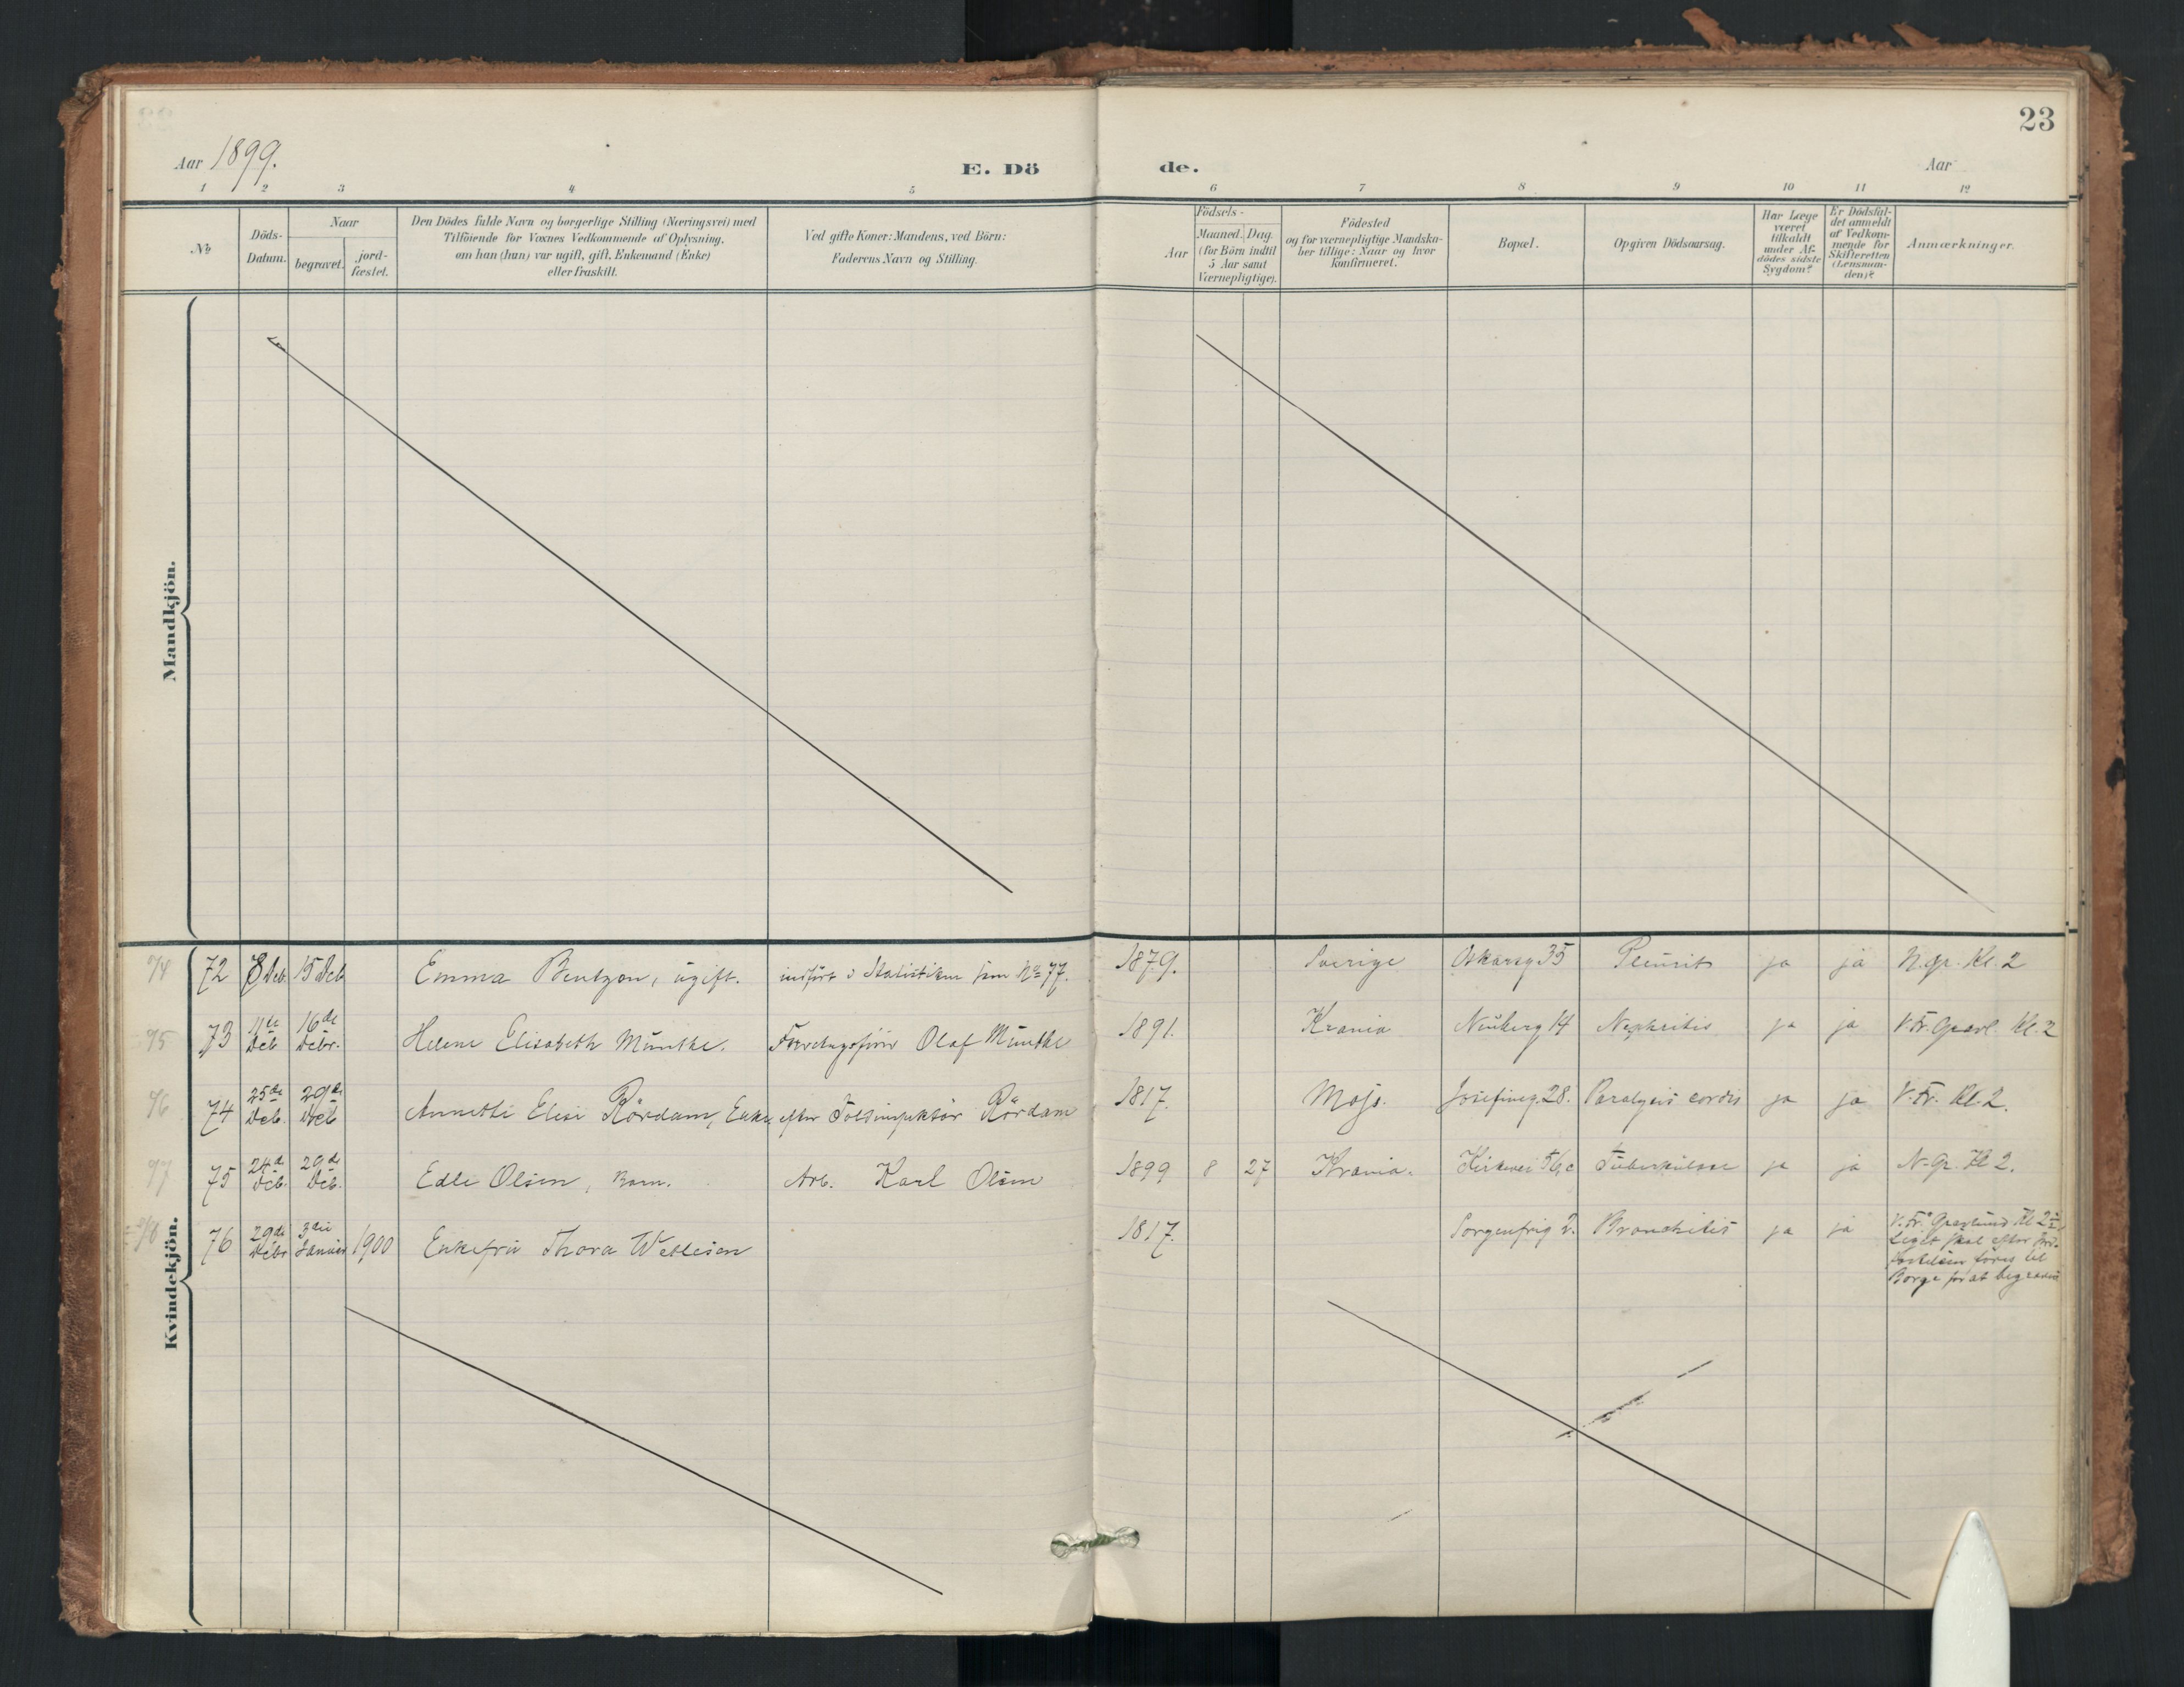 23
Aar 1899.
E. Dö de.
Aar
1 2 3 4 5 6 7 8 9 10 11 12
No
Döds-Datum.
Naar
begravet.
jord-fæstet.
Den Dödes fulde Navn og borgerlige Stilling (Næringsvei) med
Tilföiende for Voxnes Vedkommende af Oplysning,
om han (hun) var ugift, gift, Enkemand (Enke)
eller fraskilt.
Ved gifte Koner: Mandens, ved Börn:
Faderens Navn og Stilling.
Födsels-
Aar
Maaned. Dag.
(for Börn indtil
5 Aar samt
Værnepligtige).
Födested
og for værnepligtige Mandska-
ber tillige: Naar og hvor
konfirmeret.
Bopæl.
Opgiven Dödsaarsag.
Har Læge
været
tilkaldt
under Af-
dödes sidste
Sygdom?
Er Dödsfal-
det anmeldt
af Vedkom-
mende for
Skifteretten
(Lensman-
den)?
Anmærkninger.
Mandkjön.
Kvindekjön.
94 72 8 Deb. 15 Deb Emma Bentzon, ugift. indført i Statistiken som No 77. 1879. Sverige Oskarsg 35 Pleurit ja ja N. gr. Kl. 2
95 73 11te Deb 16de Debr. Helene Elisabeth Münthe. Olaf Münthe 1891. Krania Neuberg 14 Nephritis ja ja V. Fr. Gravl. Kl. 2
96 74 25de Deb. 29de Deb Annette Elise Rördam, Enke efter Toldinspektör Rördam 1817. Moss. Josefineg. 28. Paralysis cordis ja ja V. Fr. Kl. 2.
97 75 24d Deb. 29d Deb. Edle Olsen, Barn. Arb. Karl Olsen 1899 8 27 Krania. Kirkevei 56c Tuberkulose ja ja N. Gr. Kl 2.
98 76 29de Debr 3die Januar 1900 Enkefru Thora Wetlesen 1817. Sorgenfrig 2. Bronchitis ja ja V. Fr. Gravlund Kl 2½,
Liget skal efter Jord-
fæstelsen föres til
Borge for at begraves